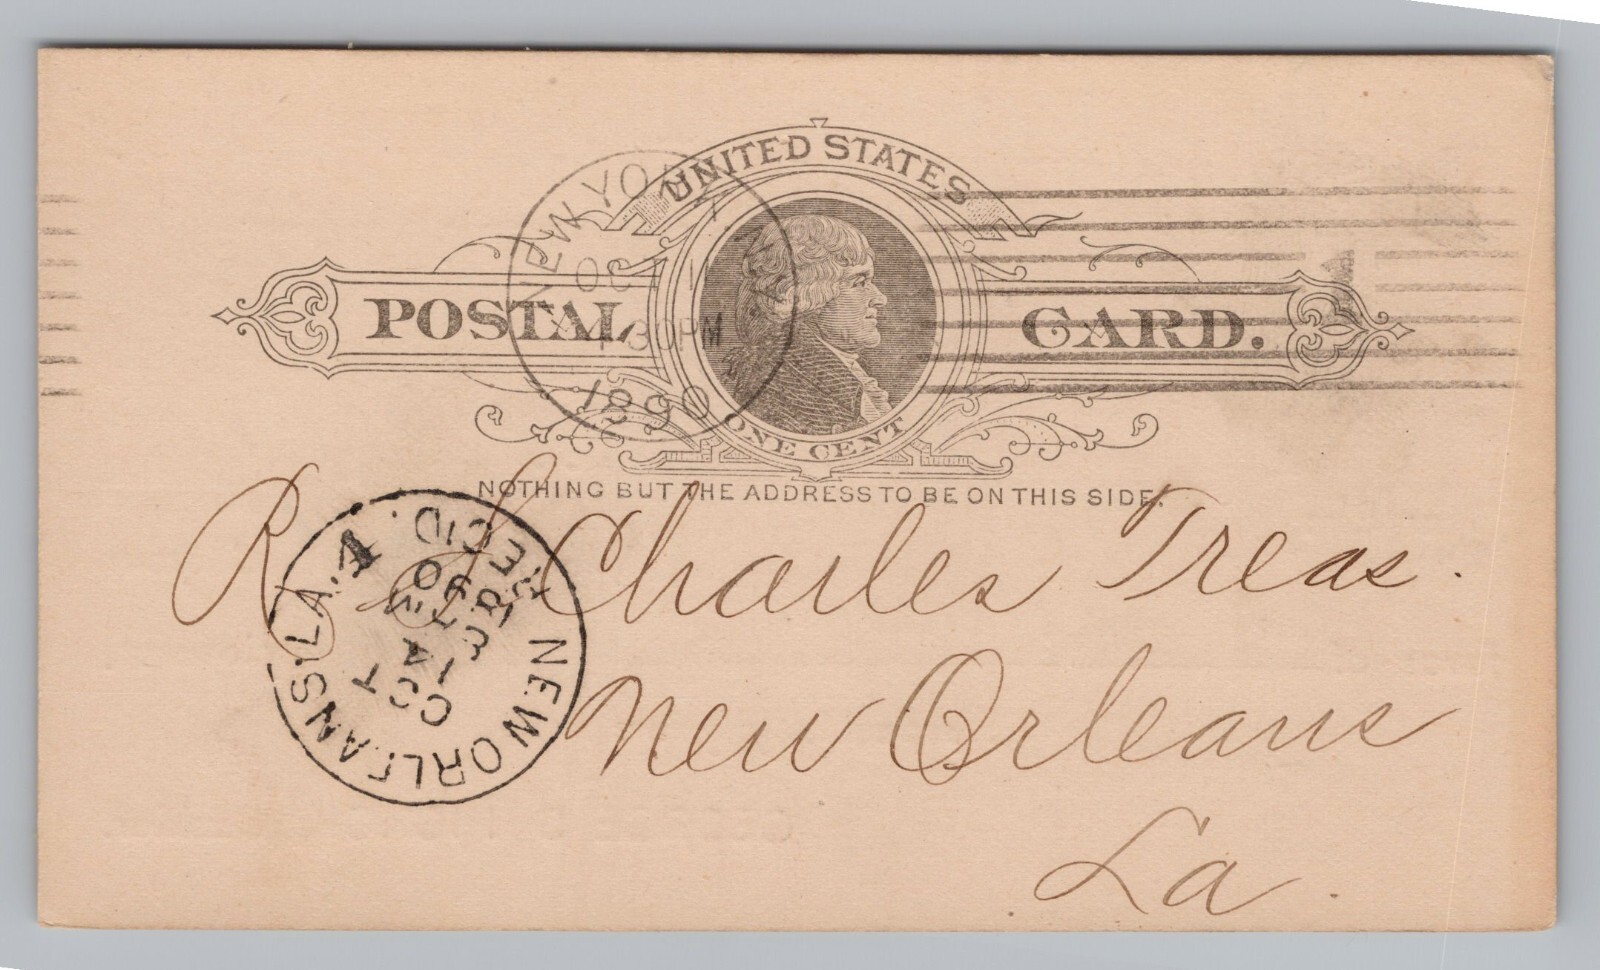 UNITED STATES
POSTAL CARD.
ONE CENT
NOTHING BUT THE ADDRESS TO BE ON THIS SIDE.
NEW YORK
OCT
30PM
1890
R S Charles Treas.
New Orleans
La.
NEW ORLEANS, LA. 4
REC'D.
OCT
90